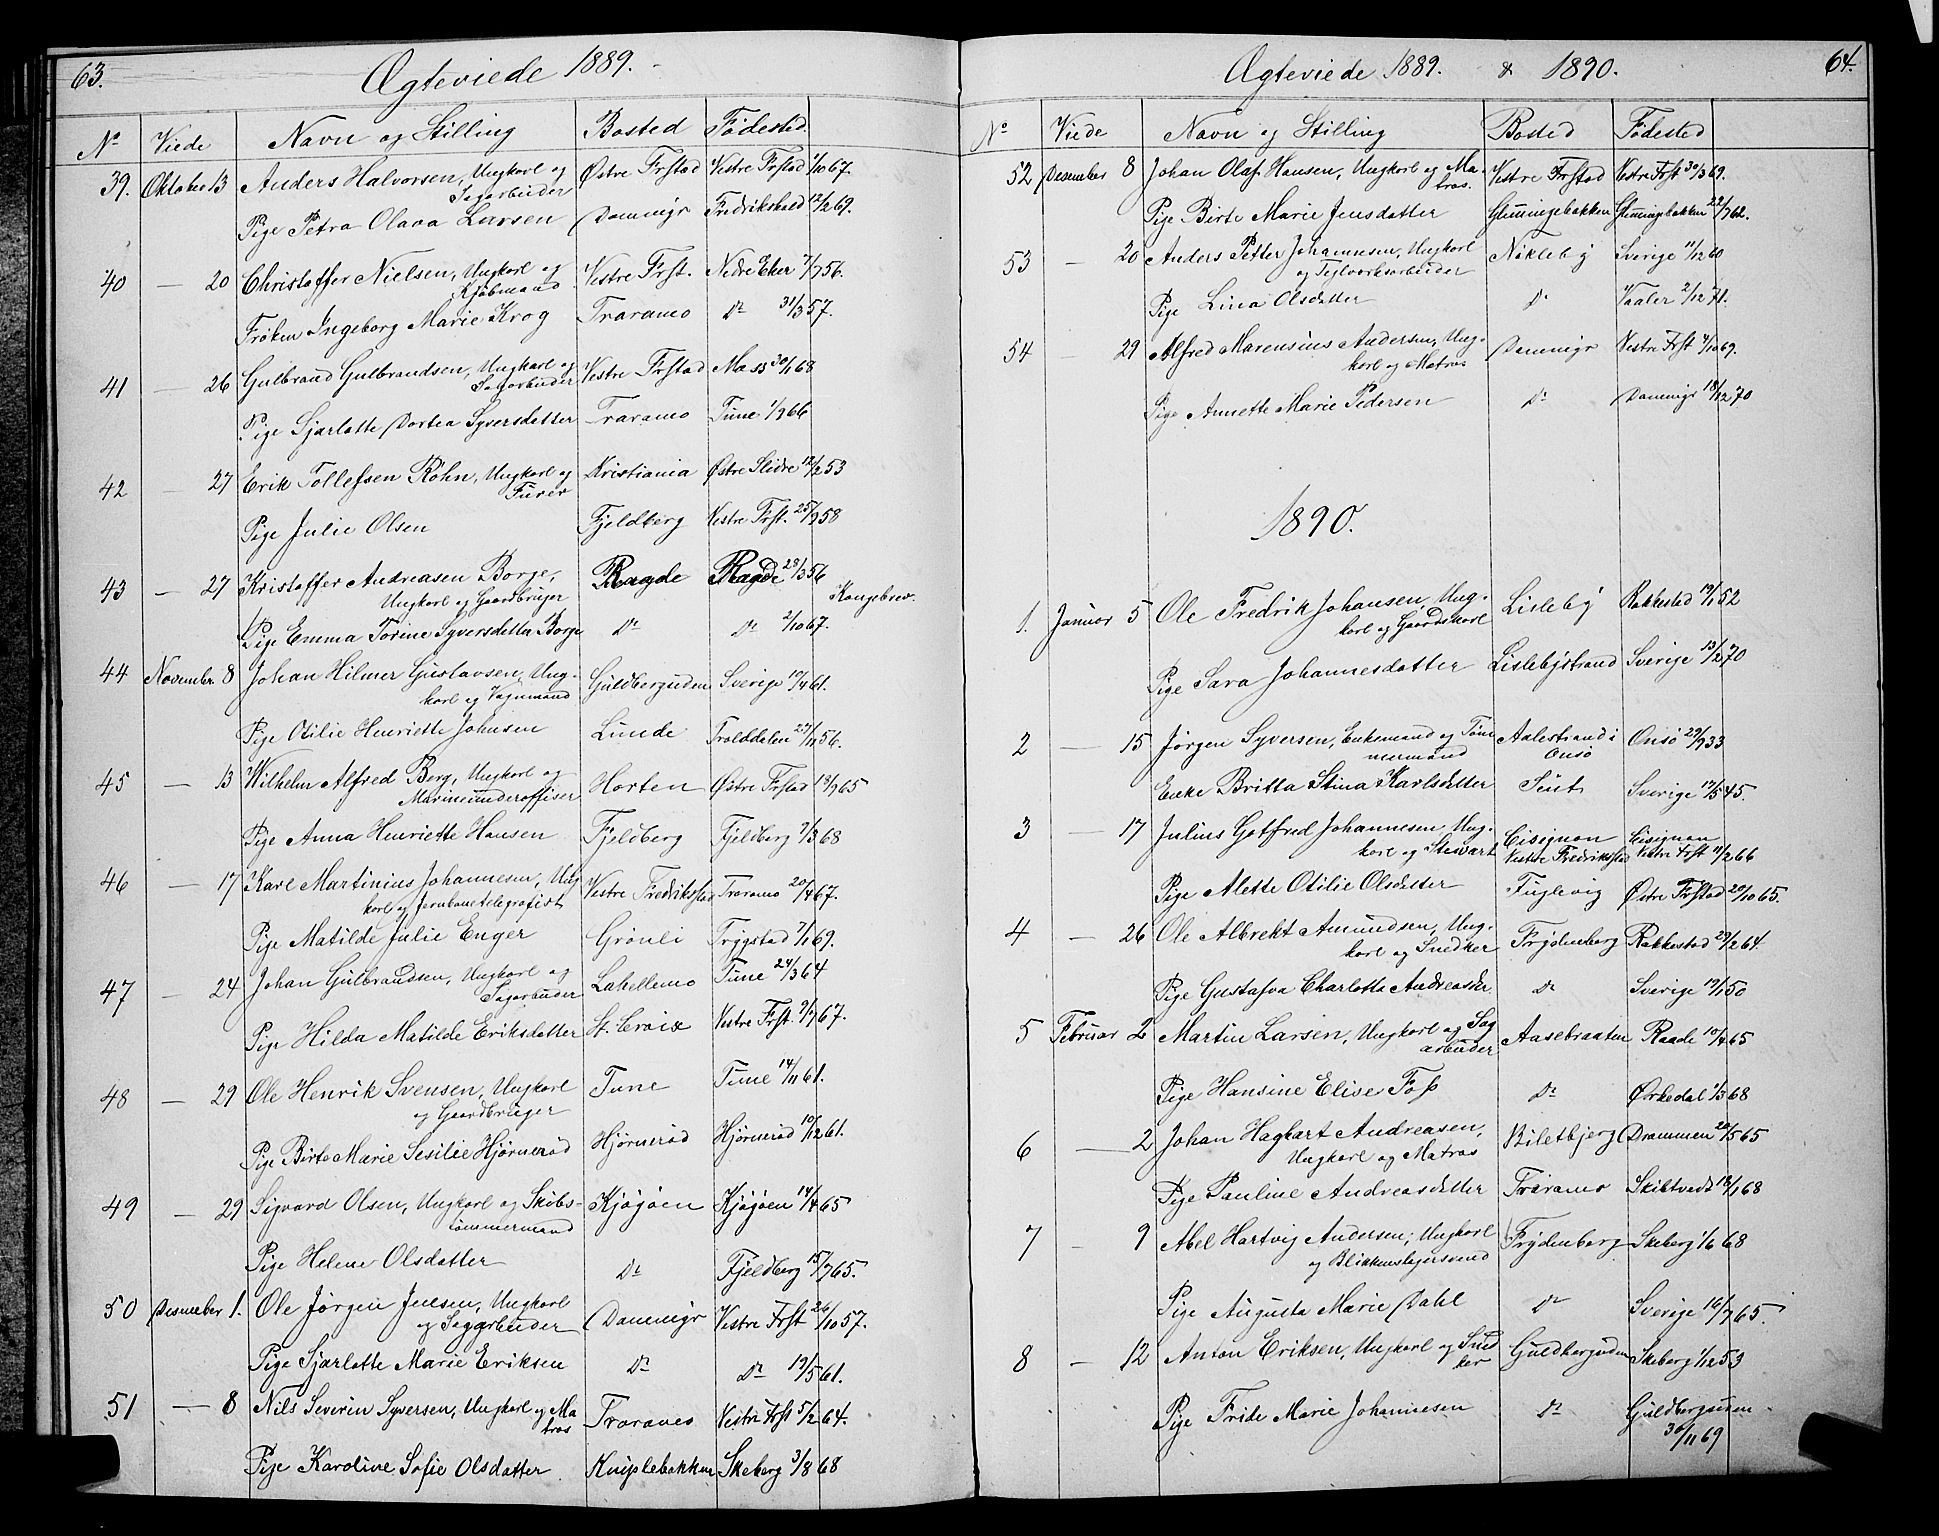 63.
Ægteviede 1889.
No Viede Navn og Stilling Bosted Födested
39. Oktober 13 Anders Halvorsen, Ungkarl og Østre Frstad Vestre Frstad 1/10 67.
Sagarbeider
Pige Petra Olava Larsen Dammigr Fredrikshald 12/2 69.
40 — 20 Christoffer Nielsen, Ungkarl og Vestre Frst. Nedre Eker 7/7 56.
Kjøbmand
Frøken Ingeborg Marie Krog Traramo Do 31/3 57.
41 — 26 Gulbrand Gulbrandsen, Ungkarl og Vestre Frstad Moss 30/1 68
Sagarbeider
Pige Sjarlotte Dortea Syversdatter Traramo Tune 1/9 66
42 — 27 Erik Tollefsen Röhn, Ungkarl og Kristiania Østre Slidre 12/2 53
Furer
Pige Julie Olsen Fjeldberg Vestre Frst. 25/9 58
43 — 27 Kristoffer Andreasen Borge, Ragde Ragde 28/3 56
Ungkarl og Gaardbruger Kongebrev.
Pige Emma Torine Syversdatter Borge Do Do 2/10 67.
44 November 8 Johan Hilmer Gustavsen, Ung- Guldbergsden Sverige 10/4 61.
karl og Vognmand
Pige Otilie Henriette Johnsen Lunde Tralddalen 27/11 56.
45 — 13 Wilhelm Alfred Berg, Ungkarl og Horten Østre Frstad 18/9 65
Marineunderoffiser
Pige Anna Henriette Hansen Fjeldberg Fjeldberg 7/3 68
46 — 17 Karl Martinius Johannesen, Ung Vestre Fredriksstad Traramo 20/4 67.
karl og Jernbanetelegrafist
Pige Matilde Julie Enger Grönli Trygstad 7/1 69.
47 — 24 Johan Gulbrandsen, Ungkarl og Lahellemo Tune 24/3 64
Sagarbeider
Pige Hilda Matilde Eriksdatter St. Croix Vestre Frst. 9/7 67.
48 — 29 Ole Henrik Svensen, Ungkarl Tune Tune 14/11 61.
og Gaardbruger
Pige Birte Marie Sesilie Hjörneröd Hjörneröd Hjörneröd 10/12 61.
49 — 29 Sigvard Olsen, Ungkarl og Skibs- Kjøgöen Kjøgöen 14/4 65
tömmermand
Pige Helene Olsdatter Do Fjeldberg 15/7 65.
50 Desember 1. Ole Jörgen Jensen, Ungkarl Dammigr Vestre Frst 26/10 57.
og Sagarbeider
Pige Sjarlotte Marie Eriksen Do Do 19/5 61.
51 — 8 Nils Severin Syversen, Ungkarl og Ma Traraveo Vestre Frst 5/2 64.
tros
Pige Karoline Sofie Olsdatter Kniplebakken Skeberg 3/8 68
Ægteviede 1889. & 1890.
64.
No Viede Navn og Stilling Bosted Födested
52 Desember 8 Johan Olaf Hansen, Ungkarl og Ma- Vestre Frstad Vestre Frst 30/3 69.
tros.
Pige Birte Marie Jensdatter Glemmingebakken Glemmingebakken 22/7 62.
53 — 20 Anders Petter Johannesen, Ungkarl Nökleby Sverige 11/12 60
og Teglverksarbeider
Pige Lina Olsdatter Do Vaaler 2/12 71.
54 — 29 Alfred Marensius Andersen, Ung- Dammigr Vestre Frst 4/10 69.
karl og Matros
Pige Annette Marie Pedersen Do Dammigr 18/12 70
1890.
1. Januar 5 Ole Fredrik Johansen, Ung- Lisleby Rakkestad 19/1 52
karl og Gaardskarl
Pige Sara Johannesdatter Lislebystrand Sverige 13/2 70
2 — 15 Jörgen Syversen, Enkemand og Töm Aalestrand i Onsö 29/9 33
mermand Onsö
Enke Britta Stina Karlsdatter Seut Sverige 17/5 45.
3 — 17 Julius Gotfred Johannesen, Ung- Cisignon Cisignon
karl og Stewart Vestre Fredriksstad Vestre Frst 11/2 66
Pige Alette Otilie Olsdatter Fuglevig Østre Frstad 20/10 65.
4 — 26 Ole Albrekt Amundsen, Ung- Frydenberg Rakkestad 29/2 64.
karl og Snedker
Pige Gustafva Charlotta Andreasdr. Do Sverige 19/1 50
5 Februar 2 Martin Larsen, Ungkarl og Sag Aasebraaten Raade 10/4 65
arbeider
Pige Hansine Elise Foss Do Ørkedal 1/3 68
6 — 2 Johan Hagbart Andreasen, Biletbjerg Drammen 20/5 65
Ungkarl og Matros
Pige Pauline Andreasdatter Traramo Skibtvedt 18/1 68
7 — 9 Abel Hartvig Andersen; Ungkarl Frydenberg Skeberg 1/6 68
og Blikkenslagersvend
Pige Augusta Marie Dahl Do Sverige 16/7 65.
8 — 12 Anton Eriksen, Ungkarl og Sned Guldbergsden Skeberg 1/12 53
ker
Pige Fride Marie Johannesen Do Guldbergsden
30/11 69